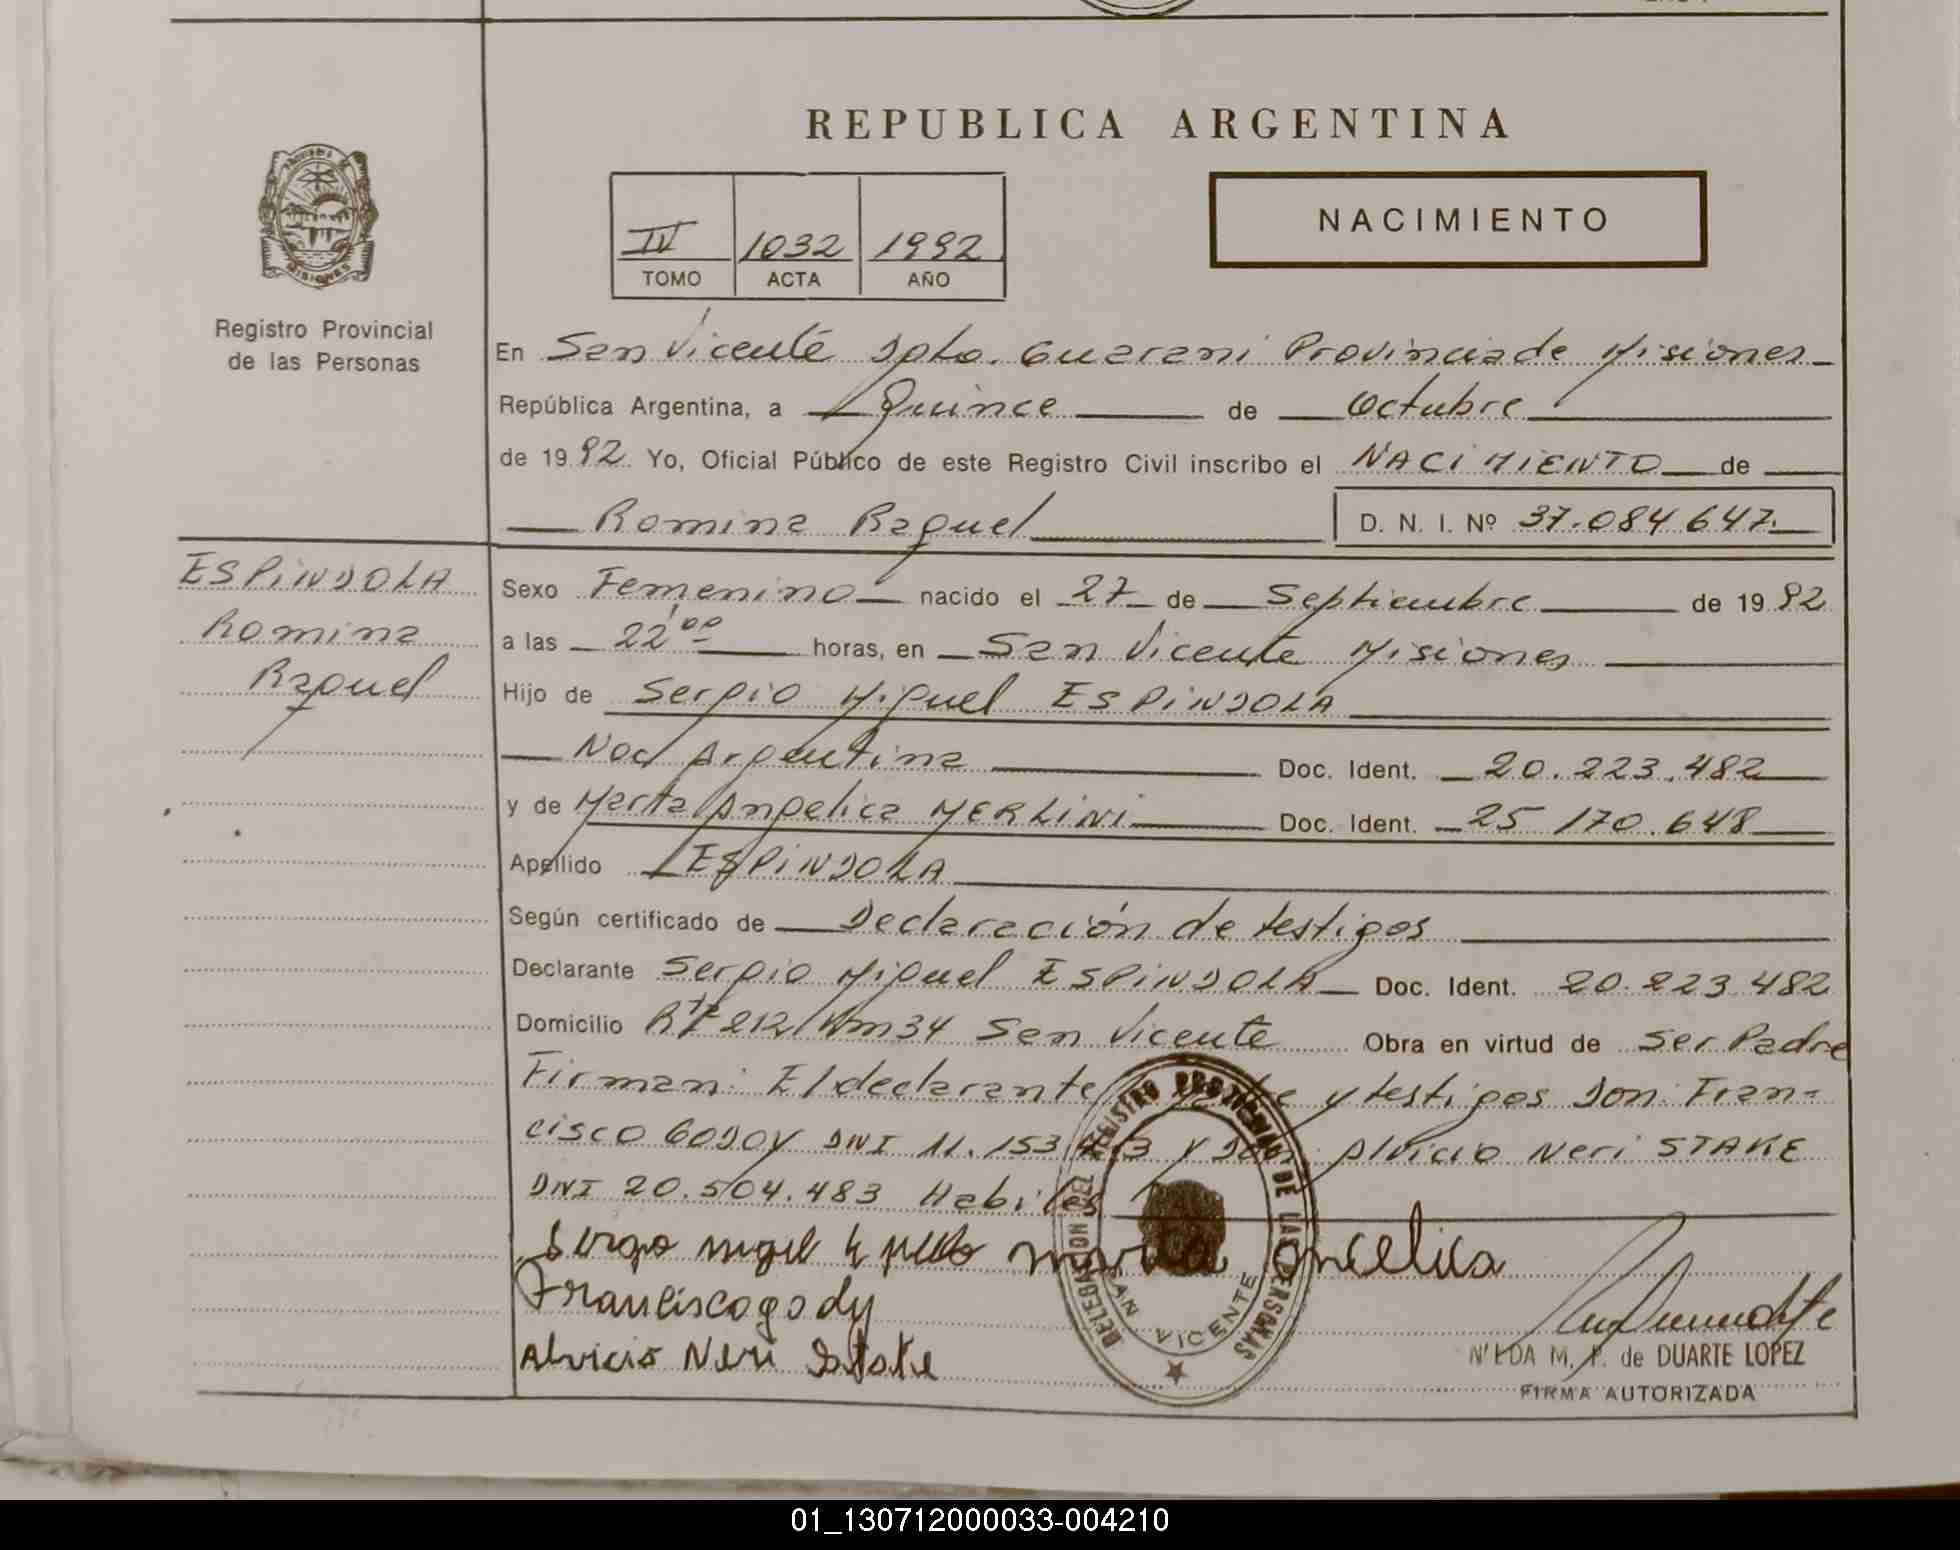 REPUBLICA ARGENTINA
NACIMIENTO
IV 1032 1992
TOMO ACTA AÑO
MISIONES
Registro Provincial
de las Personas
En San Vicente Dpto. Guarani Provincia de Misiones
República Argentina, a Quince de Octubre
de 1992 Yo, Oficial Público de este Registro Civil inscribo el NACIMIENTO de
Romina Raquel D. N. I. Nº 37.084.647
ESPINDOLA
Romina
Raquel
Sexo Femenino nacido el 27 de Septiembre de 1992
a las 22,00 horas, en San Vicente Misiones
Hijo de Sergio Miguel ESPINDOLA
Nac Argentina Doc. Ident. 20.223.482
y de Marta Angelica MERLINI Doc. Ident. 25 170.648
Apellido ESPINDOLA
Según certificado de Declaración de testigos
Declarante Sergio Miguel ESPINDOLA Doc. Ident. 20.223.482
Domicilio Rta 212 Km 34 San Vicente Obra en virtud de Ser Padre
Firman: El declarante y testigos Don: Fran=
cisco GODOY DNI 11.153 y Don: Alvicio Neri STAKE
DNI 20.504.483 Habiles
Sergio Migel marta angelica
Franciscogody
Alvicio Neri Stake
DELEGACION DEL REGISTRO PROVINCIAL DE LAS PERSONAS
SAN VICENTE
NILDA M. P. de DUARTE LOPEZ
FIRMA AUTORIZADA
01_130712000033-004210